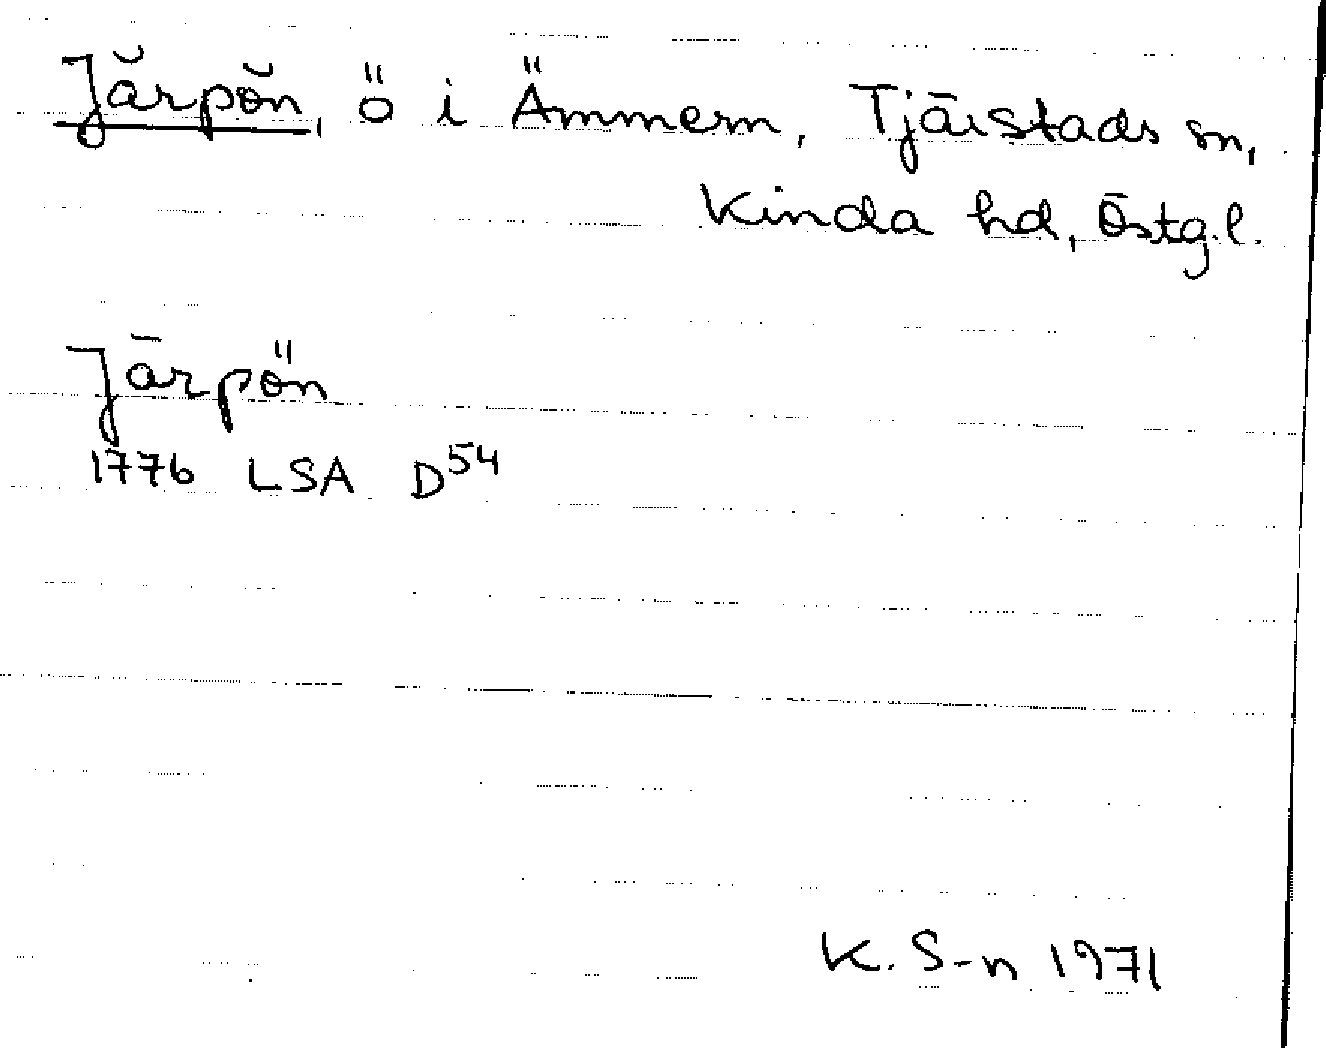 Järpön, ö i Ämmern, Tjärstads sn,
Kinda hd, Östg.l.
Järpön
1776 LSA D54
K. S-n 1971